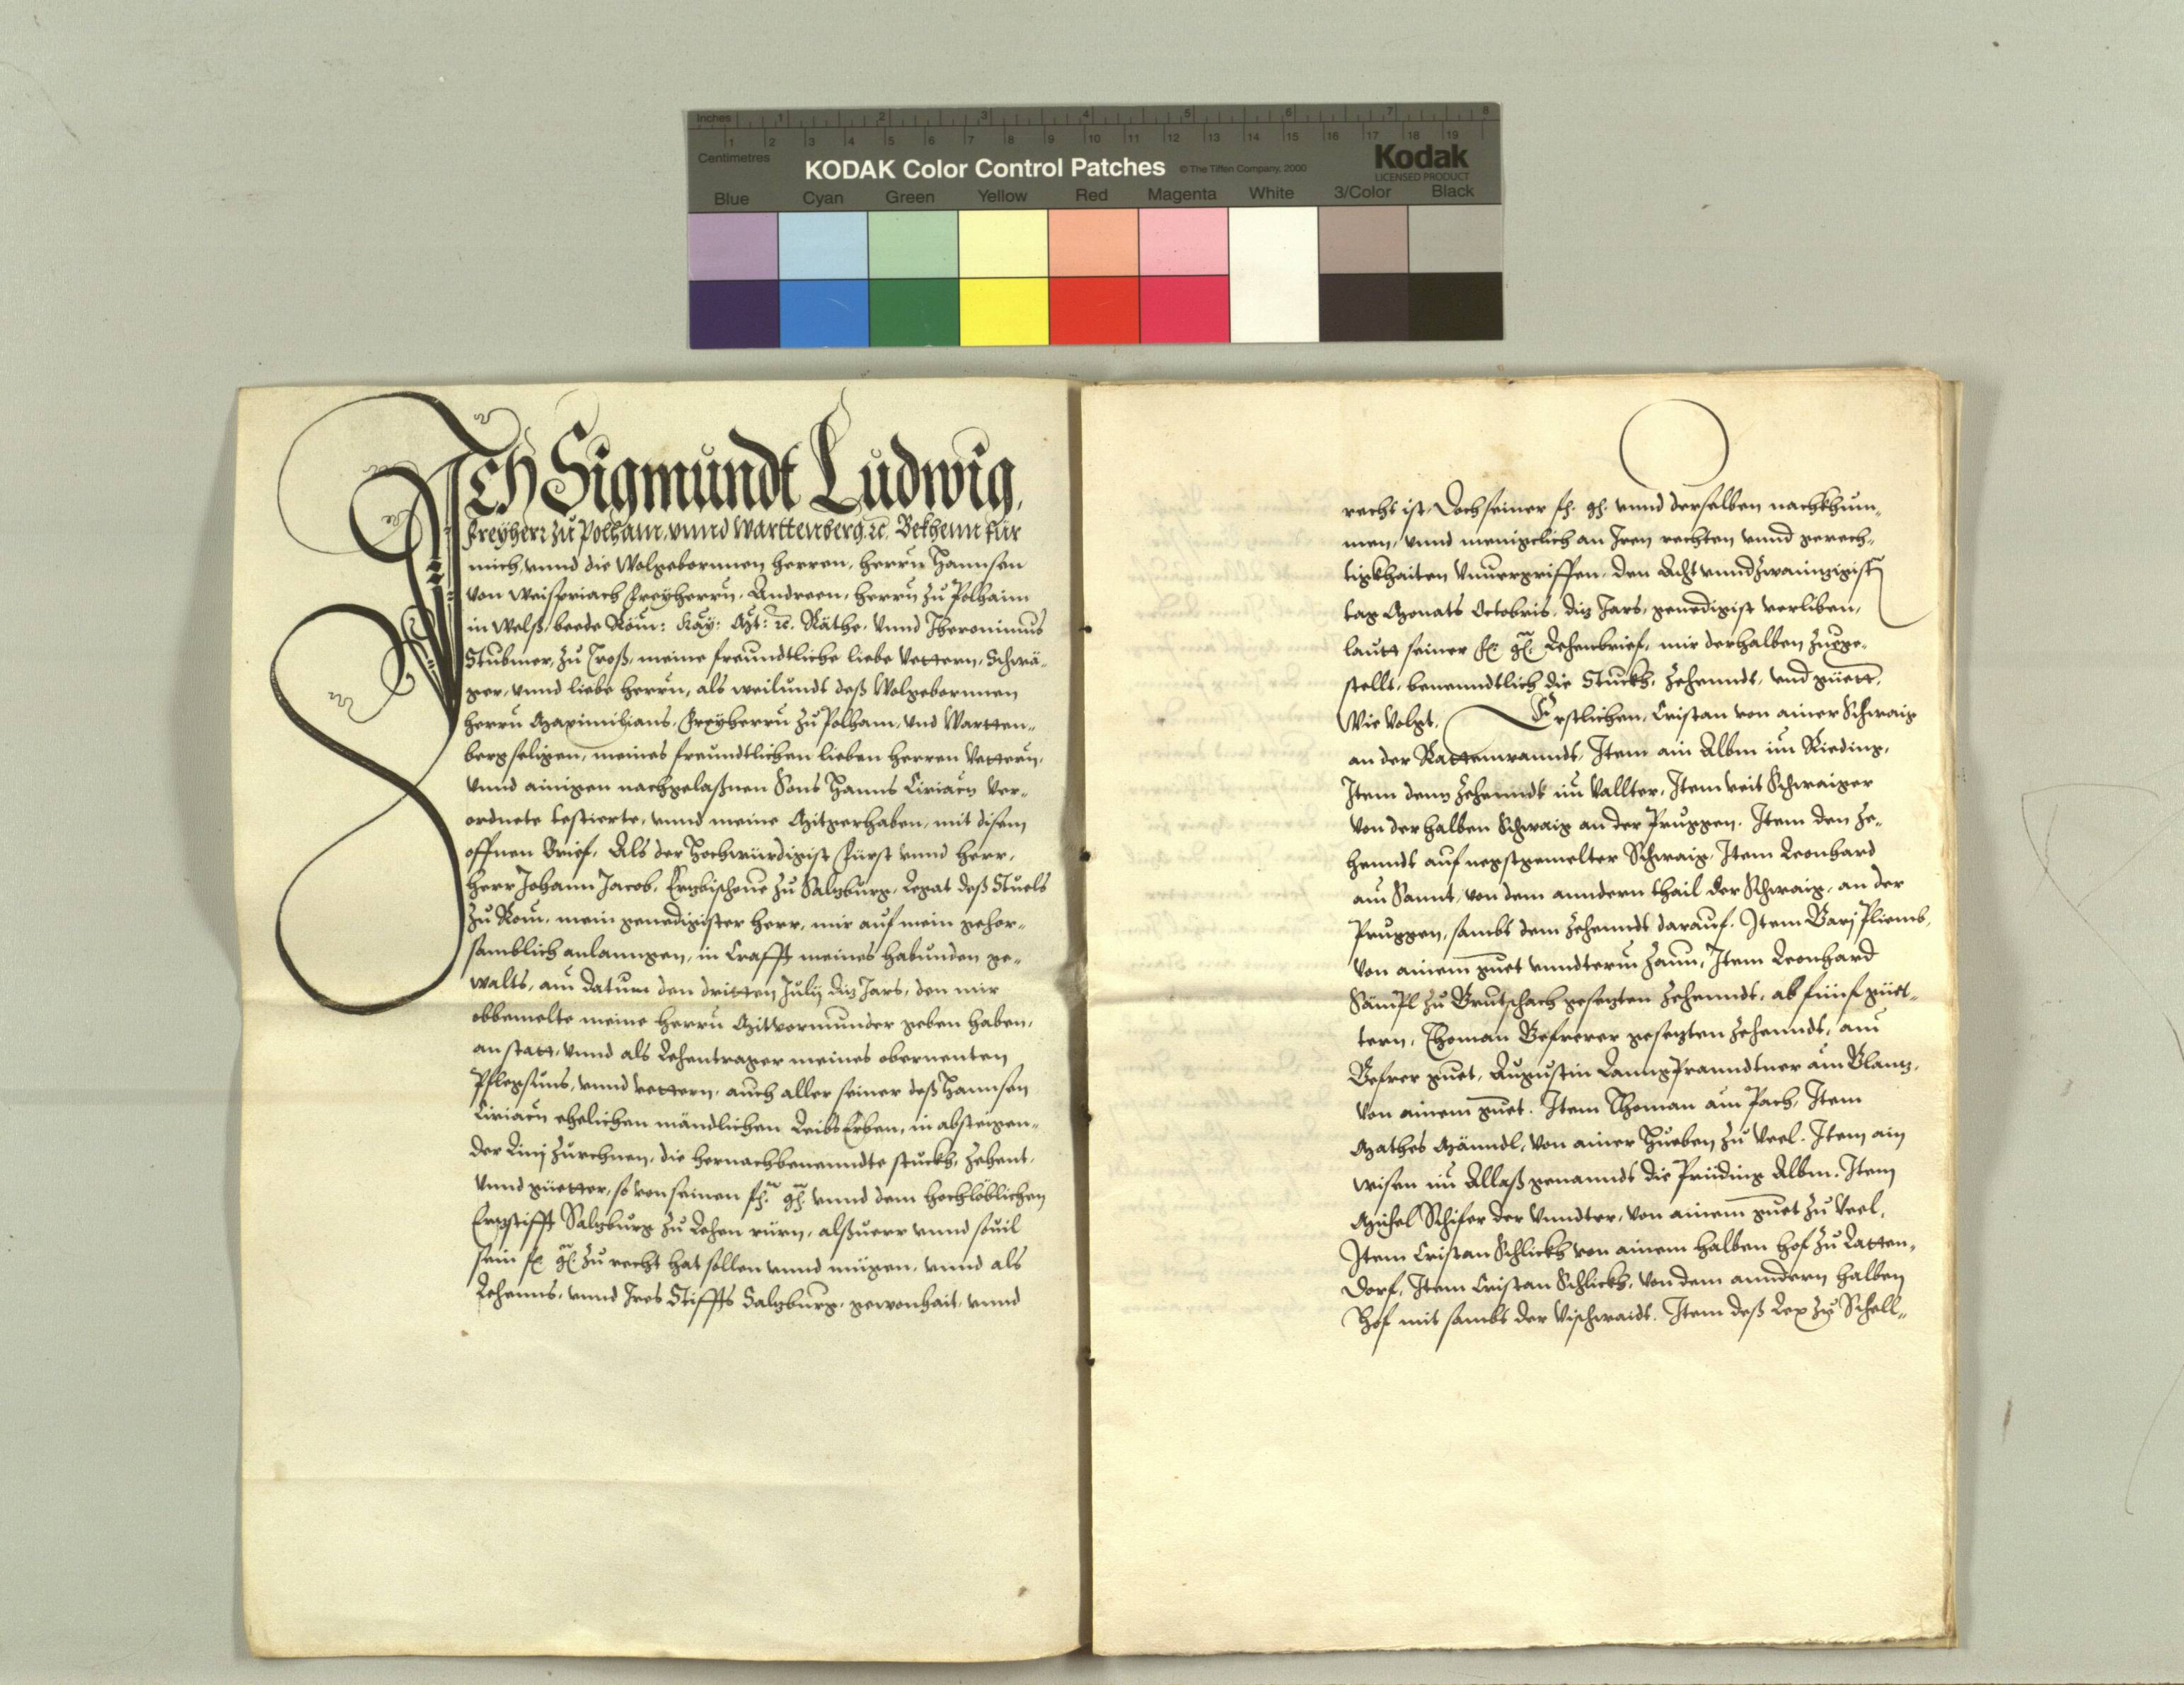 Inches 1 2 3 4 5 6 7 8
1 2 3 4 5 6 7 8 9 10 11 12 13 14 15 16 17 18 19
Centimetres
KODAK Color Control Patches © The Tiffen Company, 2000 Kodak
LICENSED PRODUCT
Blue Cyan Green Yellow Red Magenta White 3/Color Black
Ich Sigmundt Ludwig,
Freyherr zu Polhaim, vnnd Warttenberg, ꝛc. Bekhenn für
mich, vnnd die Wolgebornnen herren, herrn Hannsen
von Weispriach Freyherrn, Andreen, herrn zu Polhaim
in Welß, beede Röm: Kay: Mt: ꝛc. Räthe, vnnd Iheronimus
Stubmer, zu Troß, meine freundtliche liebe Vettern, Schwä-
ger, vnnd liebe herrn, als weilundt deß Wolgebornnen
herrn Maximilians, Freyherrn zu Polham, vnd Wartten-
berg seligen, meines freundtlichen lieben herren Vettern,
vnnd ainigen nachgelaßnen Sons Hanns Ciriacn ver-
ordnete testierte, vnnd meine Mitgerhaben, mit disem
offnen Brief, Als der Hochwürdigist Fürst vnnd herr,
herr Johann Jacob, Ertzbischoue zu Saltzburg, Legat deß Stuels
zu Rom, mein genedigister herr, mir auf mein gehor-
samblich anlanngen, in Crafft meines habunden ge-
walts, am datum den dritten July ditz Jars, den mir
obbemelte meine herrn Mitvormunder geben haben,
anstatt, vnnd als Lehentrager meines obernenten
Pflegsuns, vnnd vettern, auch aller seiner deß Hannsen
Ciriacn ehelichen mändlichen LeibsErben, in absteigen-
der Linj zurechnen, die hernachbenenndte stuckh, zehent,
vnnd güetter, so von seinen fh. gh. vnnd dem hochlöblichen
Ertzstifft Saltzburg zu Lehen rürn, alßuerr vnnd souil
sein fr. gl. zu recht hat sollen vnnd mügen, vnnd als
Lehenns, vnnd Ires Stiffts Saltzburg, gewonhait, vnnd
recht ist, Doch seiner fh. gh. vnnd derselben nachkhum-
men, vnnd menigclich an Iren rechten vnnd gerech-
tigkhaiten vnuergriffen, den Acht vnnd zwainzigisten
tag Monats Octobris, ditz Jars, genedigist verlihen,
lautt seiner fr. gl. Lehenbrief, mir derhalben zuege-
stellt, benenndtlich die Stuckh, zehenndt, vnd güett,
Wie volgt. Erstlichen, Cristan von ainer Schwaig
an der Rattenwanndt, Item ain Albm im Rieding,
Item denn zehenndt im Vallter, Item veit Schwaiger
von der halben Schwaig an der Pruggen. Item den ze-
henndt auf negstgemelter Schwaig, Item Leonhard
am Sannt, von dem anndern thail der Schwaig, an der
Pruggen, sambt dem zehenndt darauf. Item
von ainem guet vnndterm Zaun, Item Leonhard
zu gesetzten zehenndt, ab fünf güet-
tern, Thoman gesetzten zehenndt, am
guet, Augustin am
von ainem guet. Item Thoman am Pach, Item
Mathes Männdl, von ainer Hueben zu Veel. Item ain
wisen im Allaß genanndt die Albm. Item
Michel Schifer der Vnndter, von ainem guet zu Veel,
Item Cristan Schlickh von ainem halben hof zu Latten-
dorf, Item Cristan Schlickh, von dem anndern halben
Hof mit sambt der Vischwaidt. Item deß Lex zu Schell-